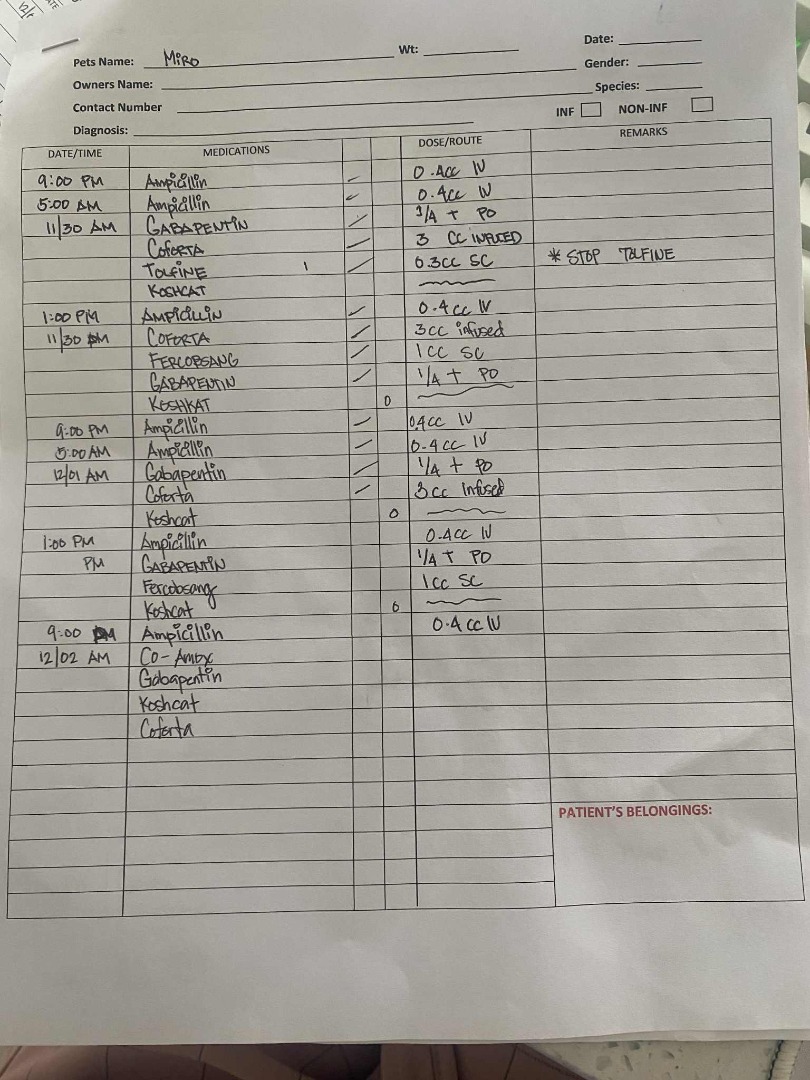 Pets Name: MIRO Wt: Date:
Owners Name: Gender:
Contact Number Species:
Diagnosis: INF NON-INF
DATE/TIME MEDICATIONS DOSE/ROUTE REMARKS
9:00 PM Ampicillin 0.4cc IV
5:00 AM Ampicillin 0.4cc IV
11/30 AM GABAPENTIN 1/4 t PO
COFORTA 3 CC INFUSED
TOLFINE 0.3cc SC * STOP TOLFINE
KOSHCAT
1:00 PM AMPICILLIN 0.4cc IV
11/30 COFORTA 3cc infused
FERCOBSANG 1CC SC
GABAPENTIN 1/4 t PO
KOSHKAT 0
9:00 PM Ampicillin 0.4cc IV
5:00 AM Ampicillin 0.4cc IV
12/01 AM Gabapentin 1/4 t PO
Coforta 3cc Infused
Koshcat 0
1:00 PM Ampicillin 0.4cc IV
PM GABAPENTIN 1/4 T PO
Fercobsang 1cc SC
Koshcat 0
9:00 PM Ampicillin 0.4cc IV
12/02 AM Co-Amox
Gabapentin
Koshcat
Coforta
PATIENT'S BELONGINGS: